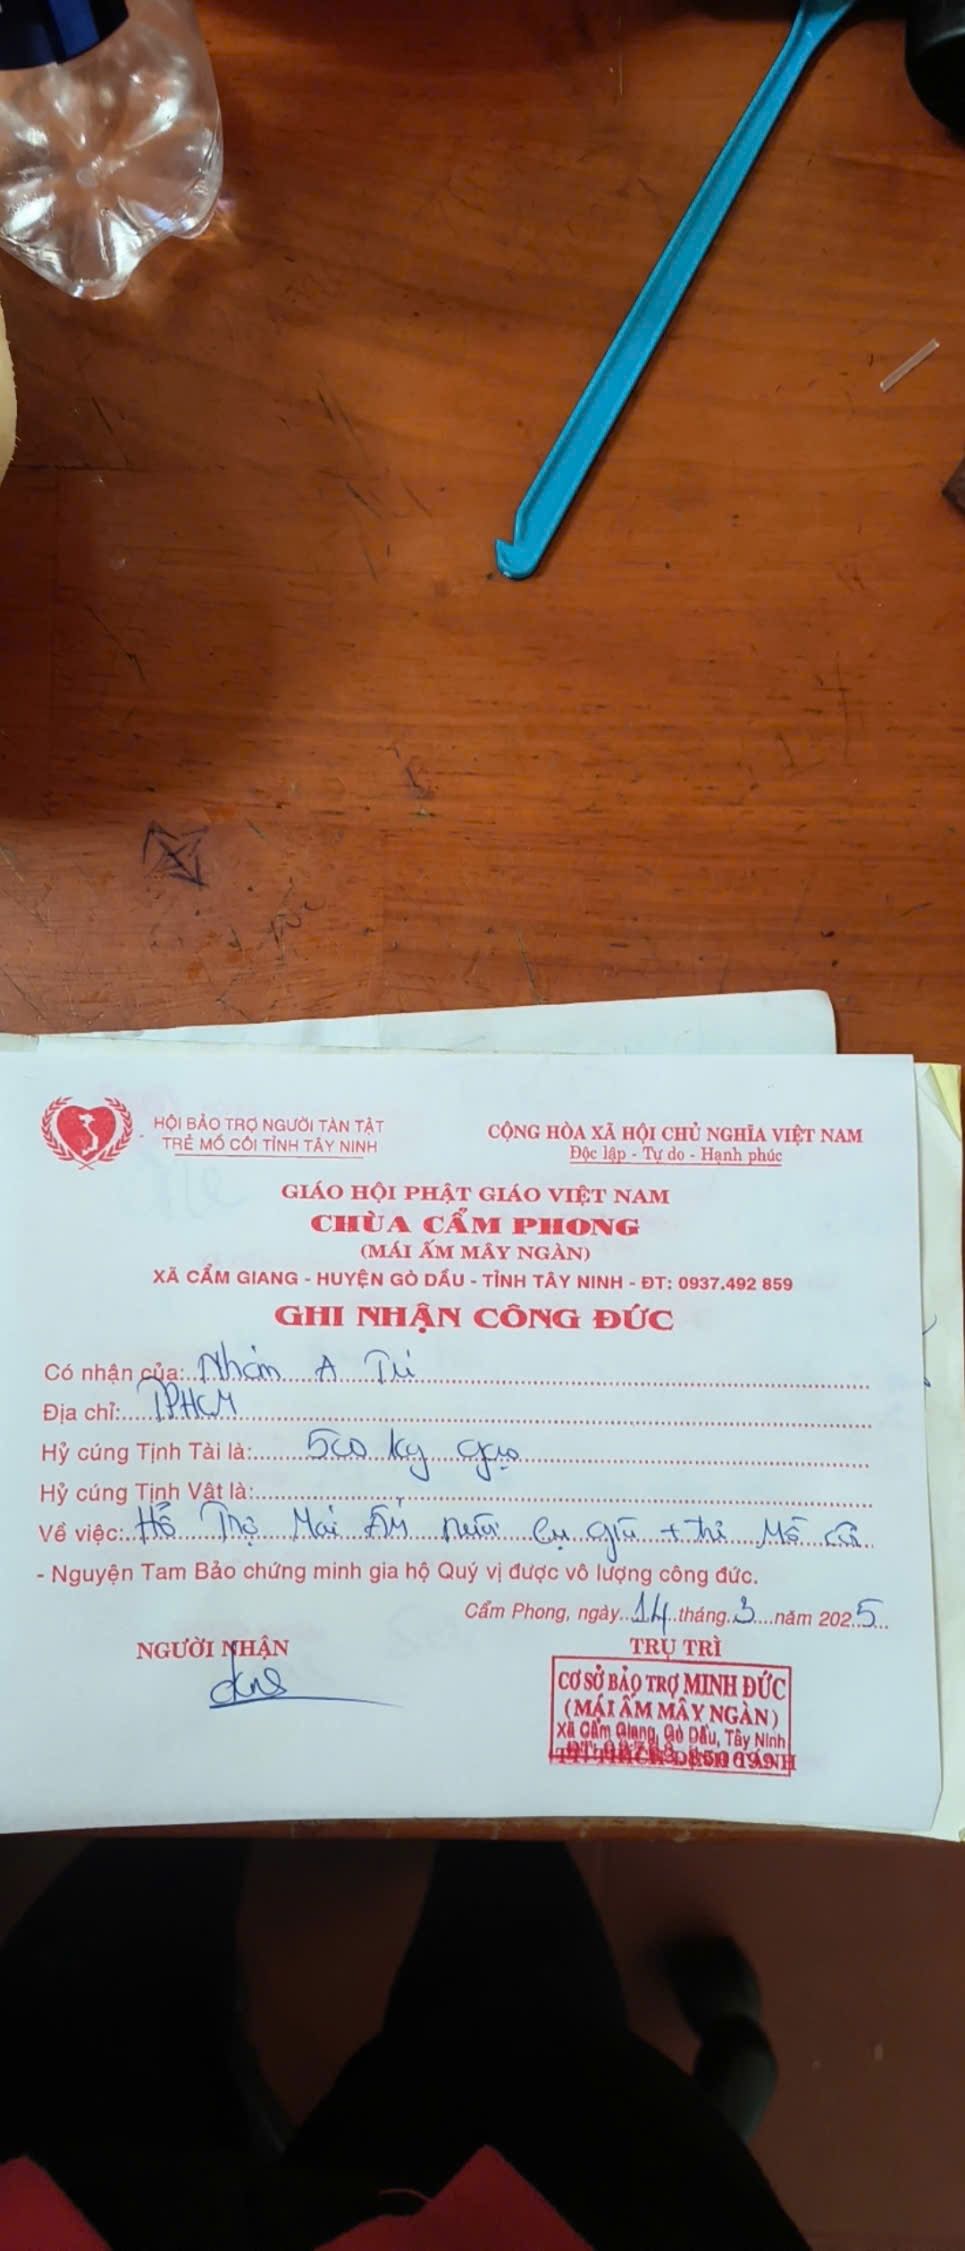 HỘI BẢO TRỢ NGƯỜI TÀN TẬT
TRẺ MỒ CÔI TỈNH TÂY NINH
CỘNG HÒA XÃ HỘI CHỦ NGHĨA VIỆT NAM
Độc lập - Tự do - Hạnh phúc
GIÁO HỘI PHẬT GIÁO VIỆT NAM
CHÙA CẨM PHONG
(MÁI ẤM MÂY NGÀN)
XÃ CẨM GIANG - HUYỆN GÒ DẦU - TỈNH TÂY NINH - ĐT: 0937.492 859
GHI NHẬN CÔNG ĐỨC
Có nhận của: A
Địa chỉ: TPHCM
Hỷ cúng Tịnh Tài là: 500 kg gạo
Hỷ cúng Tịnh Vật là:
Về việc: Hỗ Trợ Mái Ấm nuôi cụ già + trẻ Mồ côi
- Nguyện Tam Bảo chứng minh gia hộ Quý vị được vô lượng công đức.
Cẩm Phong, ngày 14 tháng 3 năm 2025
NGƯỜI NHẬN
TRỤ TRÌ
CƠ SỞ BẢO TRỢ MINH ĐỨC
(MÁI ẤM MÂY NGÀN)
Xã Cẩm Giang, Gò Dầu, Tây Ninh